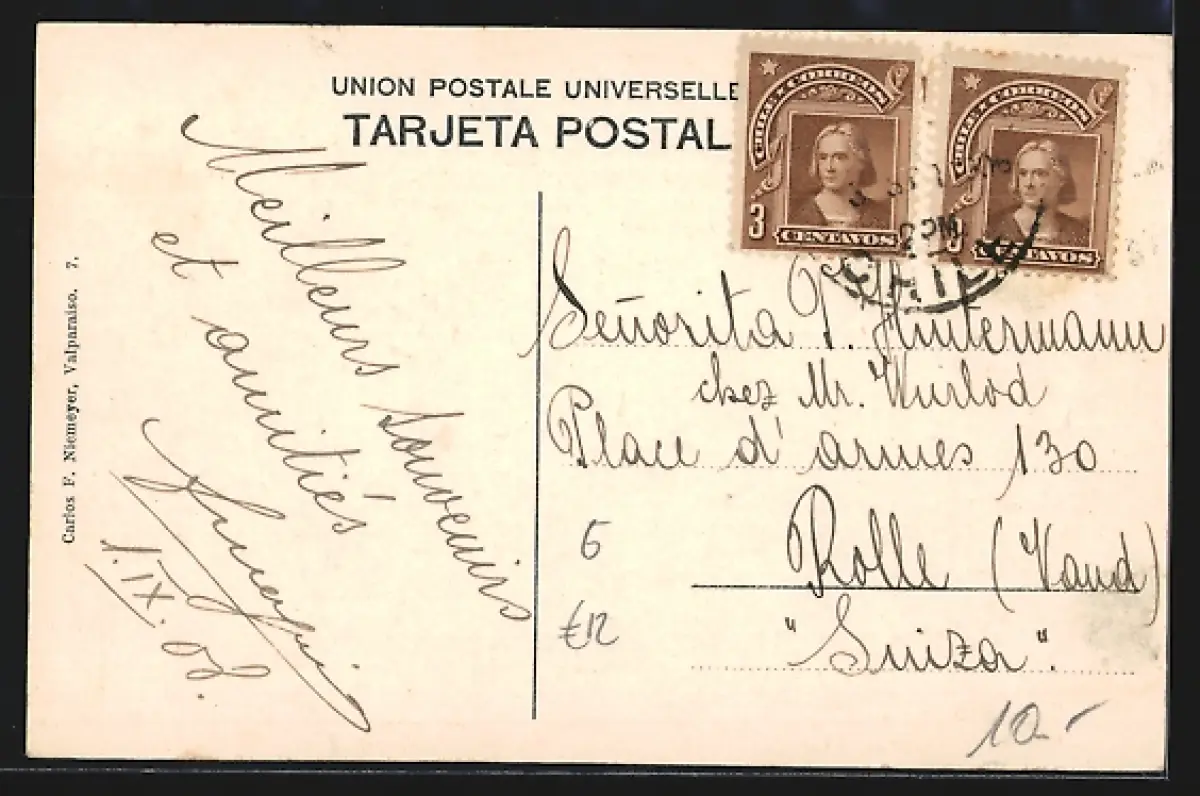 UNION POSTALE UNIVERSELLE
TARJETA POSTAL
CHILE CORREOS
3
CENTAVOS
CHILE CORREOS
CENTAVOS
CHILE
Meilleurs souvenirs
et amitiés
1. IX. 08.
Carlos F. Niemeyer, Valparaiso. 7.
Señorita P. Hintermann
chez Mr. Wurlod
Place d'armes 130
Rolle (Vaud)
"Suiza".
6
£12
10.-